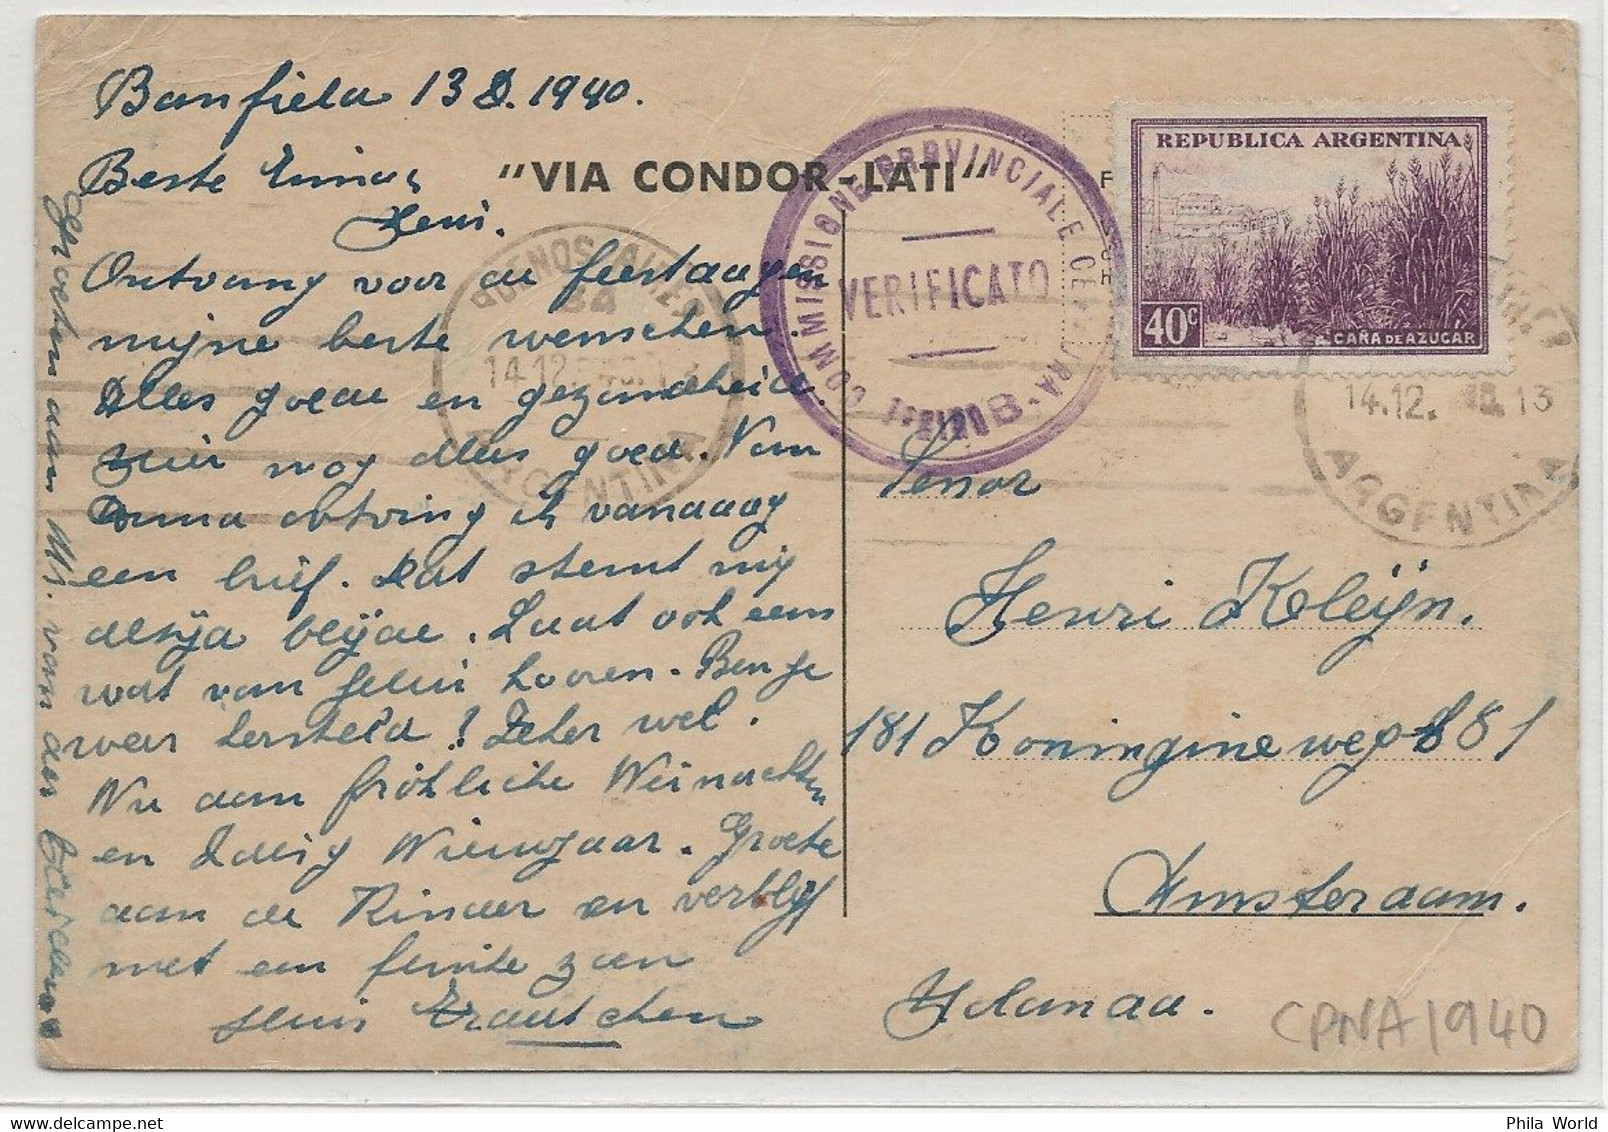 Banfield 13 D. 1940.
Beste
Heni.
"VIA CONDOR-LATI"
Ontvang voor de feestdagen
mijne beste wenschen.
Alles goede en gezondheid.
Hier nog alles goed. Van
Anna ontving ik vandaag
een brief. Dat stemt mij
altija blijde. Laat ook eens
wat van hooren. Ben je
weer hersteld! Zeker wel.
Nu dan fröhliche Weinachten
en Zalig Nieuwjaar. Groete
aan de Kinder en verblijf
met een zoen
Trautchen
Groeten aan Mr. van den
COMMISSIONE PROVINCIALE CENSURA
VERIFICATO
REPUBLICA ARGENTINA
40c
CAÑA DE AZUCAR
BUENOS AIRES
14.12
ARGENTINA
14.12. 13
ARGENTINA
Senor
Henri Kleijn.
181 Koningineweg 181
Amsterdam.
Holanda.
CPNA 1940
Phila World